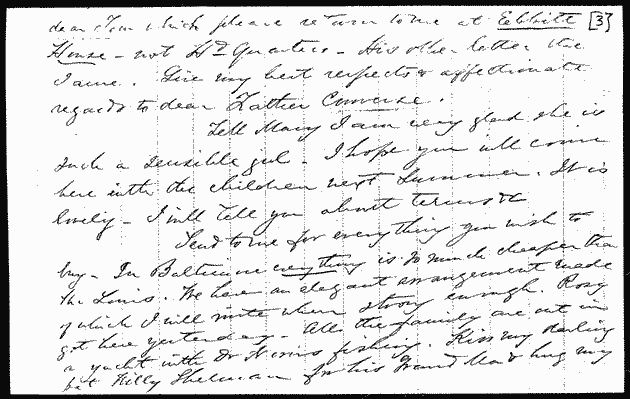 dear Tom which please return to me at Ebbitt [3]
House - not Hd Quarters - His other letter the
same. Give my best respects & affectionate
regards to dear Father Converse.
Tell Mary I am very glad she is
such a sensible girl - I hope you will come
here with the children next summer. It is
lovely - I will tell you about terms &c
Send to me for everything you wish to
buy - In Baltimore everything is so much cheaper than
St. Louis. We have an elegant arrangement made
of which I will write when strong enough. Rosy
got here yesterday - All the family are out in
a yacht with Dr fishing. Kiss my darling
pet Willy Sherman for his Grand Ma & hug my